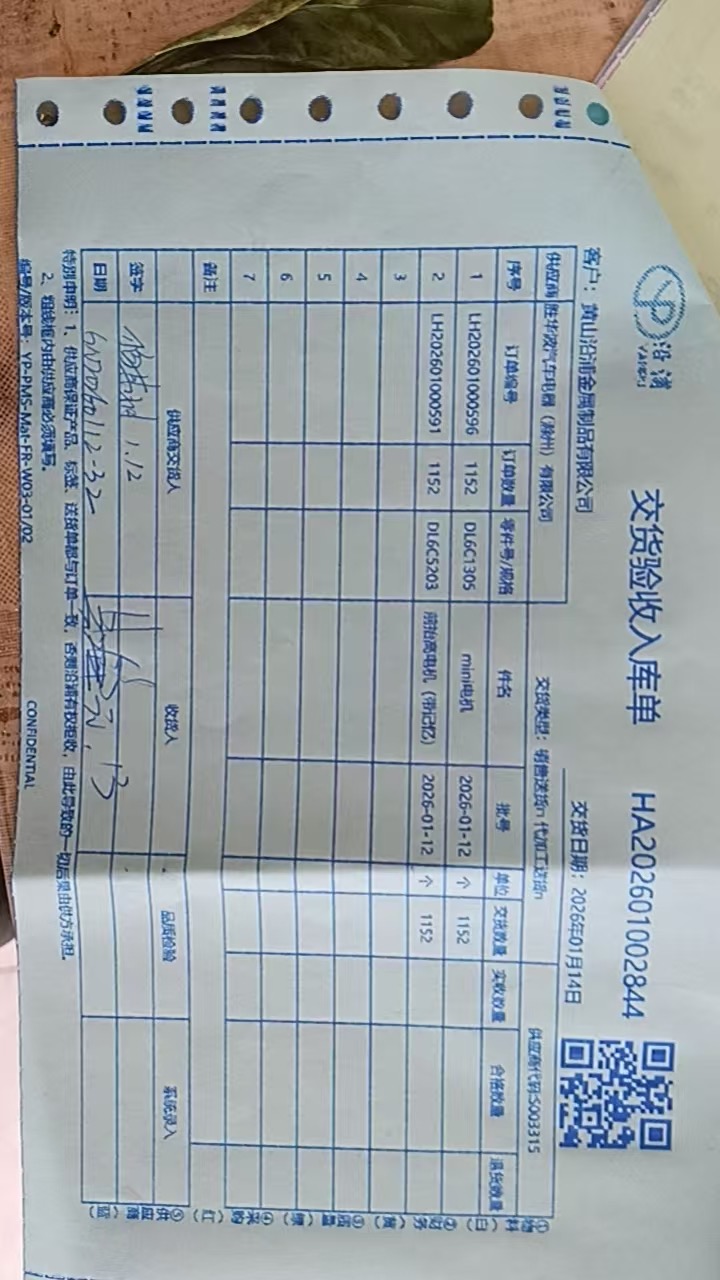 沿浦
YANPU
交货验收入库单 HA202601002844
客户：黄山沿浦金属制品有限公司 交货日期：2026年01月14日
供应商 胜华波汽车电器（滁州）有限公司 交货类型：销售送货n 代加工送货n 供应商代码:S003315
序号 订单编号 订单数量 零件号/规格 件名 批号 单位 交货数量 实收数量 合格数量 退货数量
1 LH202601000596 1152 DL6C1305 mini电机 2026-01-12 个 1152
2 LH202601000591 1152 DL6C5203 前抬高电机（带记忆） 2026-01-12 个 1152
3
4
5
6
7
备注
供应商交货人 收货人 品质检验 系统录入
签字 1.12
日期 13
特别申明：1、供应商保证产品、标签、送货单都与订单一致，否则沿浦有权拒收，由此导致的一切后果由供方承担。
2、粗线框内由供应商必须填写。
编号/版本号：YP-PMS-Mat-FR-W03-01/02 CONFIDENTIAL
①物料（白）②财务（黄）③质量（绿）④采购（红）⑤供应商（蓝）